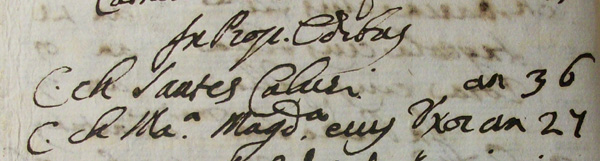 In Prop. Edibus
C. ch Santes Caluri an 36
C. ch Ma.a Magd.a eius Vxor an 27